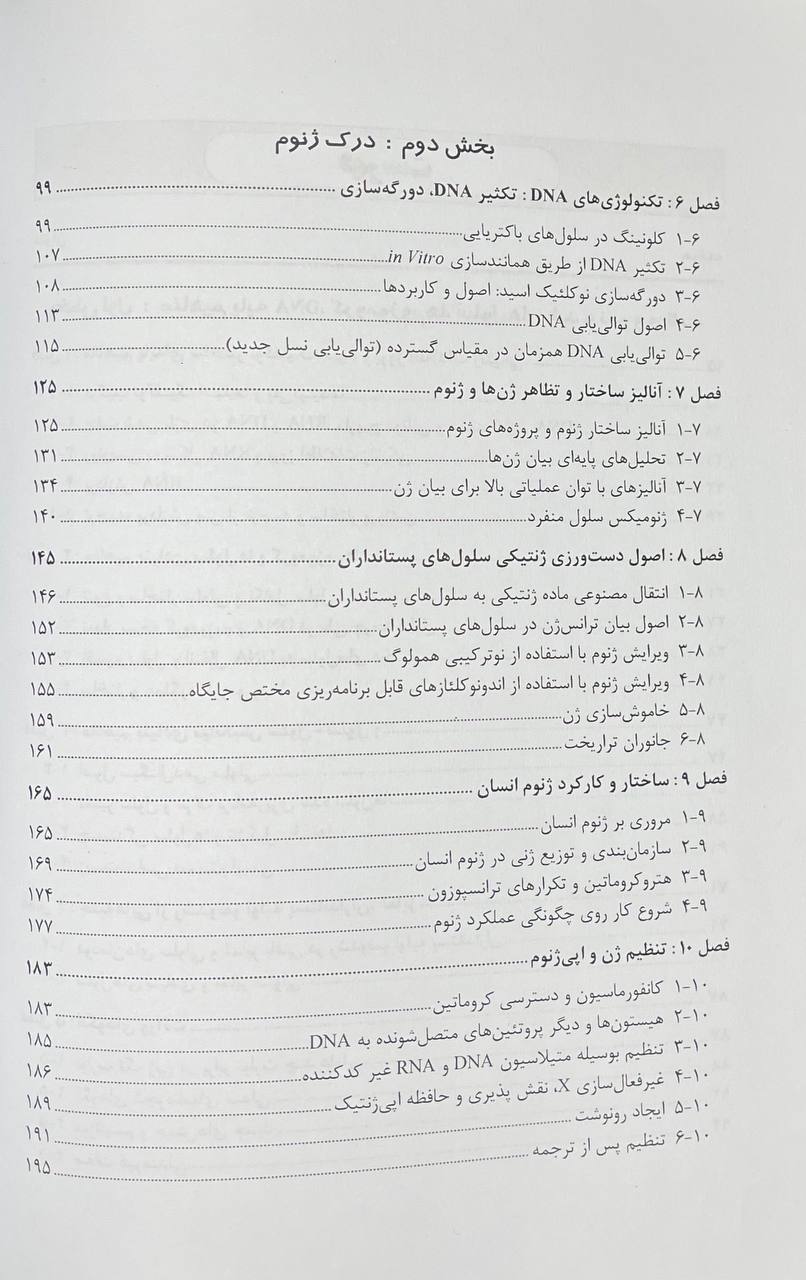 بخش دوم : درک ژنوم
فصل ۶ : تکنولوژی‌های DNA : تکثیر DNA، دورگه‌سازی ........ ۹۹
۶-۱ کلونینگ در سلول‌های باکتریایی ........ ۹۹
۶-۲ تکثیر DNA از طریق همانندسازی in Vitro ........ ۱۰۷
۶-۳ دورگه‌سازی نوکلئیک اسید: اصول و کاربردها ........ ۱۰۸
۶-۴ اصول توالی‌یابی DNA ........ ۱۱۳
۶-۵ توالی‌یابی DNA همزمان در مقیاس گسترده (توالی‌یابی نسل جدید) ........ ۱۱۵
فصل ۷ : آنالیز ساختار و تظاهر ژن‌ها و ژنوم ........ ۱۲۵
۷-۱ آنالیز ساختار ژنوم و پروژه‌های ژنوم ........ ۱۲۵
۷-۲ تحلیل‌های پایه‌ای بیان ژن‌ها ........ ۱۳۱
۷-۳ آنالیزهای با توان عملیاتی بالا برای بیان ژن ........ ۱۳۴
۷-۴ ژنومیکس سلول منفرد ........ ۱۴۰
فصل ۸ : اصول دست‌ورزی ژنتیکی سلول‌های پستانداران ........ ۱۴۵
۸-۱ انتقال مصنوعی ماده ژنتیکی به سلول‌های پستانداران ........ ۱۴۶
۸-۲ اصول بیان ترانس‌ژن در سلول‌های پستانداران ........ ۱۵۲
۸-۳ ویرایش ژنوم با استفاده از نوترکیبی همولوگ ........ ۱۵۳
۸-۴ ویرایش ژنوم با استفاده از اندونوکلئازهای قابل برنامه‌ریزی مختص جایگاه ........ ۱۵۵
۸-۵ خاموش‌سازی ژن ........ ۱۵۹
۸-۶ جانوران تراریخت ........ ۱۶۱
فصل ۹ : ساختار و کارکرد ژنوم انسان ........ ۱۶۵
۹-۱ مروری بر ژنوم انسان ........ ۱۶۵
۹-۲ سازمان‌بندی و توزیع ژنی در ژنوم انسان ........ ۱۶۹
۹-۳ هتروکروماتین و تکرارهای ترانسپوزون ........ ۱۷۴
۹-۴ شروع کار روی چگونگی عملکرد ژنوم ........ ۱۷۷
فصل ۱۰ : تنظیم ژن و اپی‌ژنوم ........ ۱۸۳
۱۰-۱ کانفورماسیون و دسترسی کروماتین ........ ۱۸۳
۱۰-۲ هیستون‌ها و دیگر پروتئین‌های متصل‌شونده به DNA ........ ۱۸۵
۱۰-۳ تنظیم بوسیله متیلاسیون DNA و RNA غیر کدکننده ........ ۱۸۶
۱۰-۴ غیرفعال‌سازی X، نقش پذیری و حافظه اپی‌ژنتیک ........ ۱۸۹
۱۰-۵ ایجاد رونوشت ........ ۱۹۱
۱۰-۶ تنظیم پس از ترجمه ........ ۱۹۵